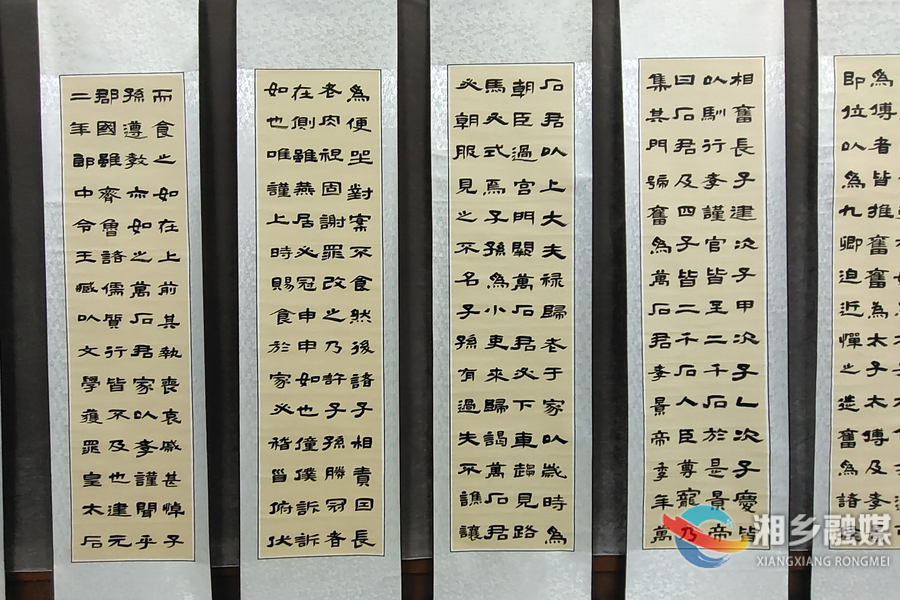 為傅者皆推奮奮為太子太傅及孝
即位以為九卿迫近憚之徙奮為諸
相奮長子建次子甲次子乙次子慶皆
以馴行孝謹官皆至二千石於是景帝
曰石君及四子皆二千石人臣尊寵乃
集其門號奮為萬石君孝景帝季年萬
石君以上大夫祿歸老于家以歲時為
朝臣過宮門闕萬石君必下車趨見路
馬必式焉子孫為小吏來歸謁萬石君
必朝服見之不名子孫有過失不譙讓
為便坐對案不食然後諸子相責因長
老肉袒固謝罪改之乃許子孫勝冠者
在側雖燕居必冠申申如也僮僕訢訢
如也唯謹上時賜食於家必稽首俯伏
而食之如在上前其執喪哀戚甚悼子
孫遵教亦如之萬石君家以孝謹聞乎
郡國雖齊魯諸儒質行皆不及也建元
二年郎中令王臧以文學獲罪皇太后
湘乡融媒
XIANGXIANG RONGMEI